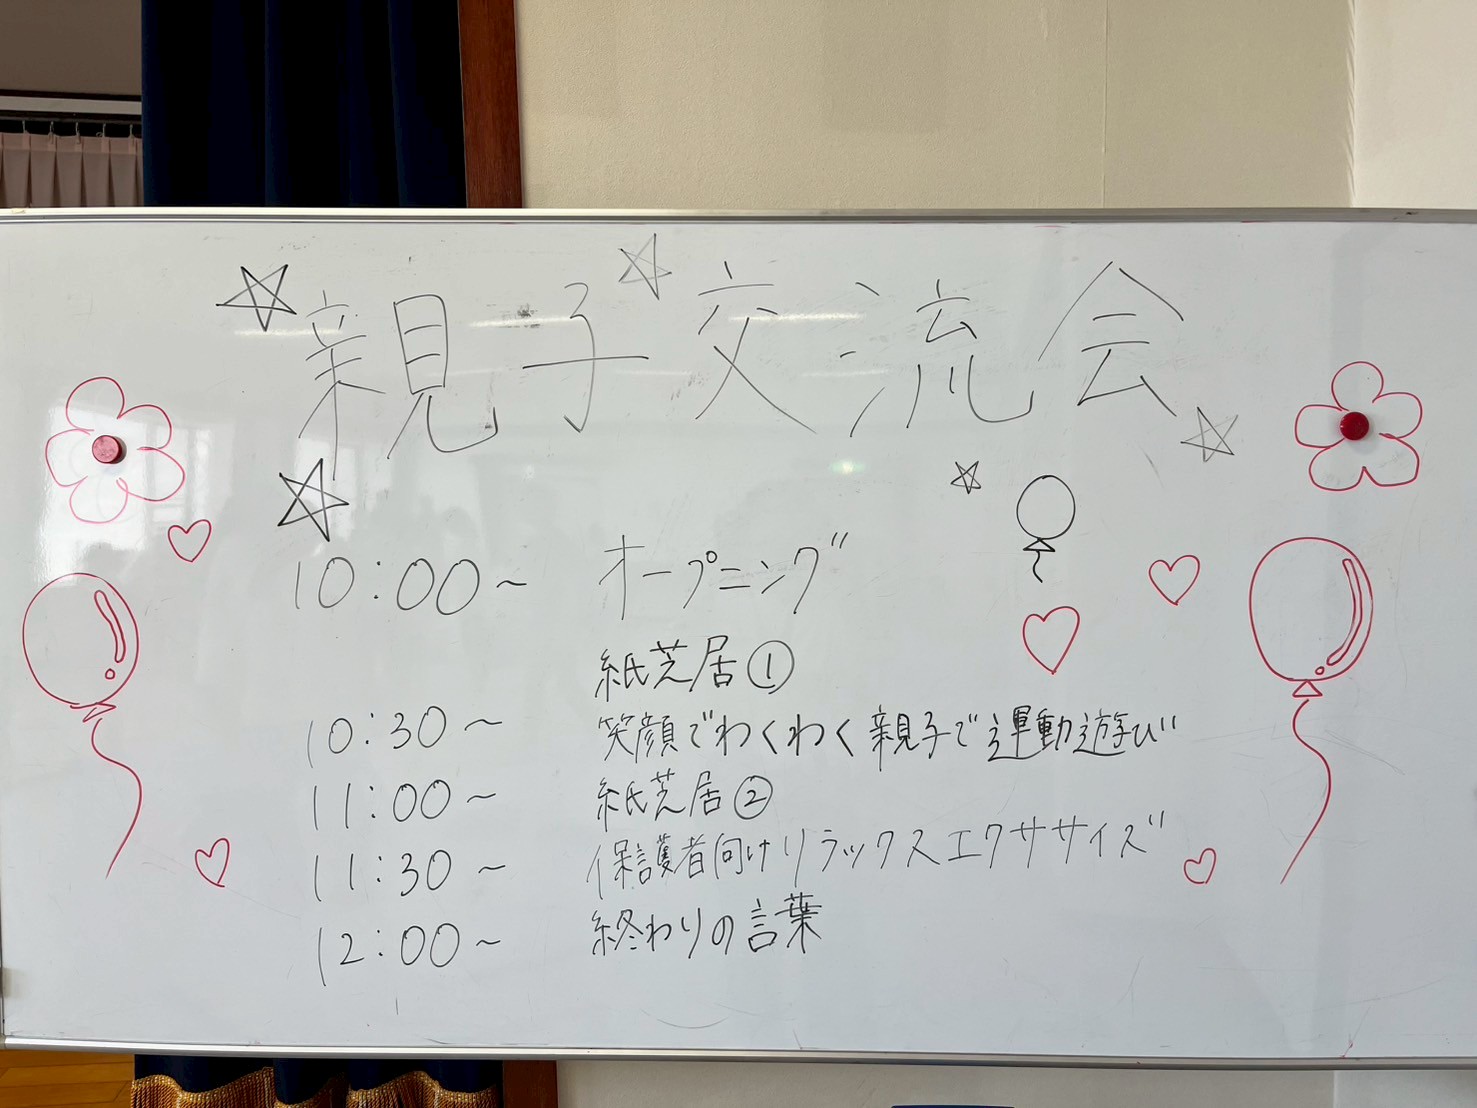 親子交流会
10:00~ オープニング
紙芝居①
10:30~ 笑顔でわくわく親子で運動遊び
11:00~ 紙芝居②
11:30~ 保護者向けリラックスエクササイズ
12:00~ 終わりの言葉